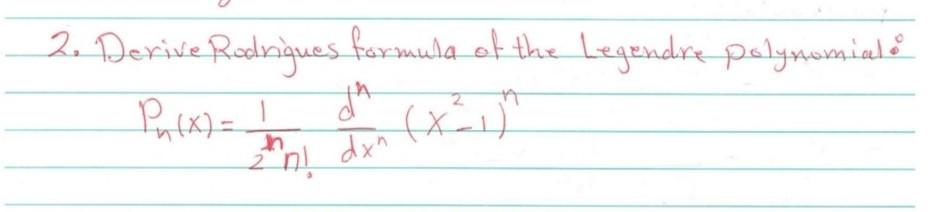 2. Derive Rodrigues formula of the Legendre polynomial:
Pₙ(x) = 1/(2ⁿ n!) dⁿ/dxⁿ (x²-1)ⁿ